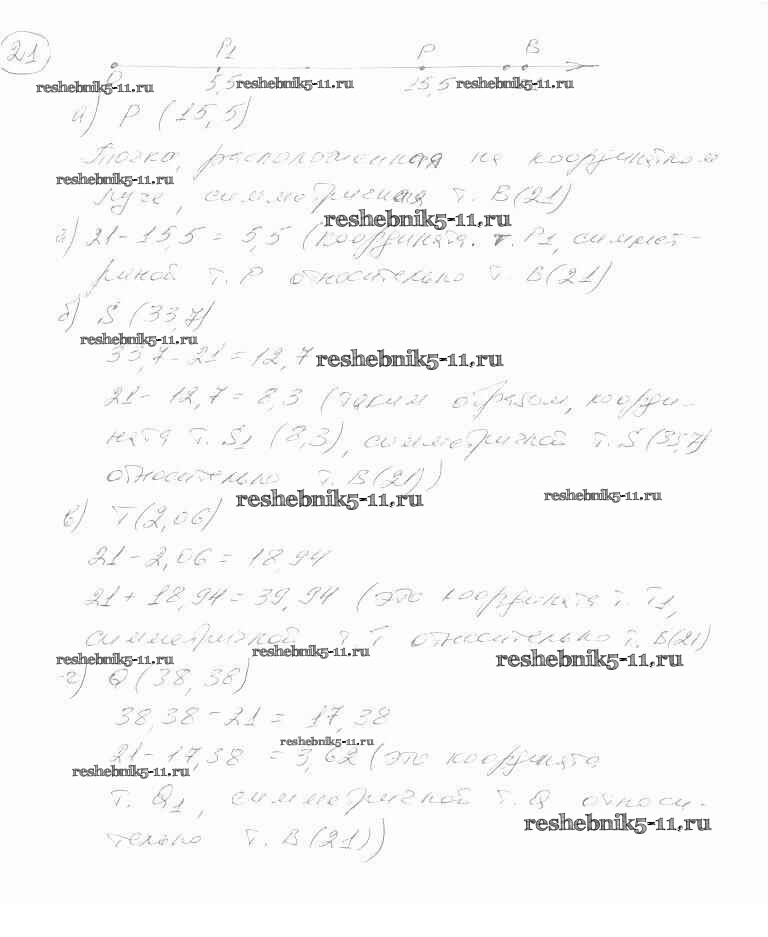 21
P1 P B
5,5 15,5
reshebnik5-11.ru reshebnik5-11.ru reshebnik5-11.ru
а) P (15,5)
Точка, расположенная на координатном
reshebnik5-11.ru
луче, симметричная т. B(21)
reshebnik5-11.ru
а) 21-15,5 = 5,5 (координата. т. P1, симмет-
ричной т. P относительно т. B(21)
б) S (33,7)
reshebnik5-11.ru
33,7-21 = 12,7 reshebnik5-11.ru
21- 12,7 = 8,3 (таким образом, коорди-
ната т. S1 (8,3), симметричной т. S (33,7)
относительно т. B(21))
reshebnik5-11.ru reshebnik5-11.ru
в) T(2,06)
21-2,06 = 18,94
21+ 18,94 = 39,94 (это координата т. T1,
симметричной т. T относительно т. B(21)
reshebnik5-11.ru reshebnik5-11.ru reshebnik5-11.ru
г) Q (38,38)
38,38-21 = 17,38
reshebnik5-11.ru
21-17,38 = 3,62 (это координата
reshebnik5-11.ru
т. Q1, симметричной т. Q относи-
reshebnik5-11.ru
тельно т. B(21))